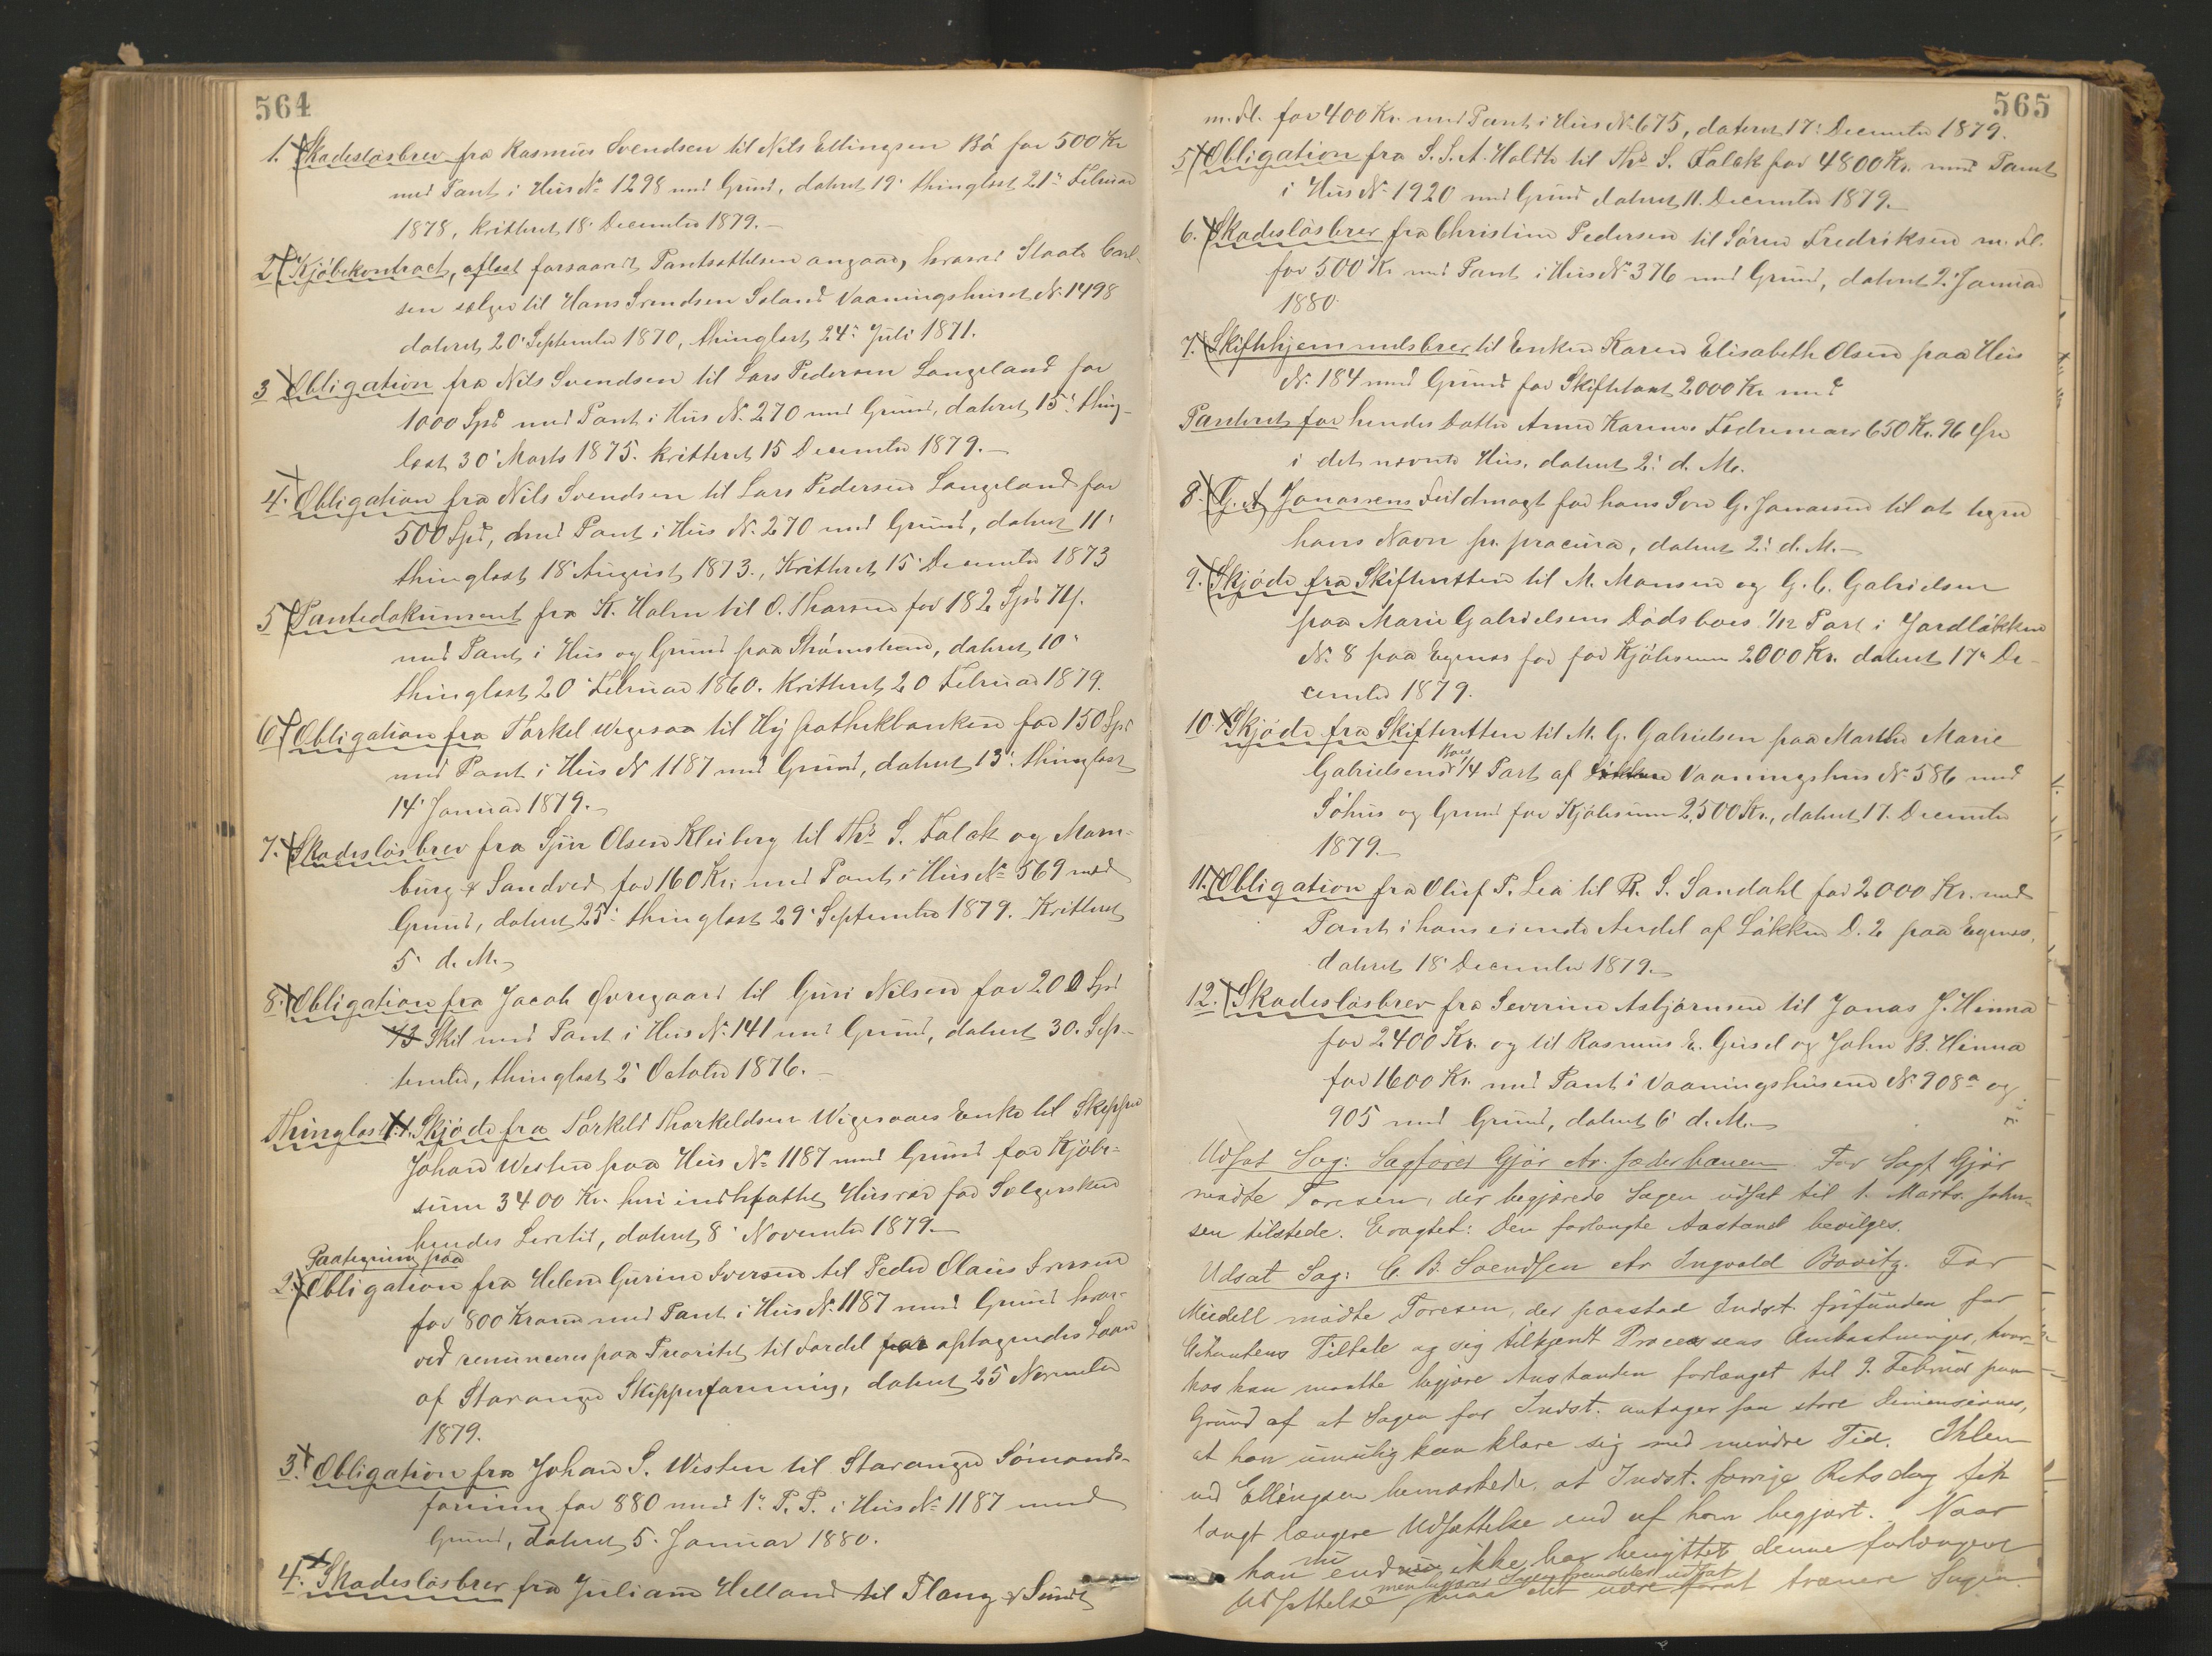 564
1. Skadeslösbrev fra Rasmus Svendsen til Nils Ellingsen Bö for 500 Kr
med Pant i Hus No 1298 med Grund, dateret 19' thinglæst 21' Februar
1878, kvitteret 18' December 1879.
2 Kjöbekontract, aflæst forsaavidt Pantsættelsen angaar, hvorved Staale Carl-
sen sælger til Hans Svendsen Soland Vaaningshuset No 1498
dateret 20' September 1870, thinglæst 24' Juli 1871.
3 Obligation fra Nils Svendsen til Lars Pedersen Langeland for
1000 Spd med Pant i Hus No 270 med Grund, dateret 15' thing-
læst 30' Marts 1875. kvitteret 15 December 1879.
4. Obligation fra Nils Svendsen til Lars Pedersen Langeland for
500 Spd, med Pant i Hus No 270 med Grund, dateret 11'
thinglæst 18' August 1873., Kvitteret 15' December 1873
5 Pantedokument fra K. Holm til O. Thorsen for 182 Spd
med Pant i Hus og Grund paa Strömsteen, dateret 10'
thinglæst 20' Februar 1860. Kvitteret 20 Februar 1879.
6 Obligation fra Torkel Wegesaa til Hypothekbanken for 150 Spd
med Pant i Hus No 1187 med Grund, dateret 13' thinglæst
14' Januar 1879.
7. Skadeslösbrev fra Olsen Kleiberg til Ths S. Falck og Mom-
burg & Sandved for 160 Kr. med Pant i Hus No 569 med
Grund, dateret 25' thinglæst 29' September 1879. Kvitteret
5' d. M.
8. Obligation fra Jacob Övregaard til Guri Nilsen for 200 Spd
73 Skil med Pant i Hus No 141 med Grund, dateret 30. Sep-
tember, thinglæst 2' October 1876.
Thinglæst: 1. Skjöde fra Torkild Thorkeldsen Wigesaaes Enke til Skipper
Johan Westen paa Hus No 1187 med Grund for Kjöbe-
sum 3400 Kr. heri indbefattet Husvær for Sælgersken
hendes Levetid, dateret 8' November 1879.
Paategning paa
2. Obligation fra Helene Gurine Iversen til Peder Olaus Iversen
for 800 Kroner med Pant i Hus No 1187 med Grund hvor-
ved renunceres paa Prioritet til Fordel for optagendes Laan
af Stavanger Skipperforening, dateret 25 November
1879.
3. Obligation fra Johan S. Westen til Stavanger Sömands-
forening for 880 med 1' P. P. i Hus No 1187 med
Grund, dateret 5. Januar 1880.
4. Skadeslösbrev fra Juliane Helland til Ploug & Sundt
565
m. fl. for 400 Kr. med Pant i Hus No 675, dateret 17' December 1879.
5 Obligation fra S. S. A. Holdt til Ths S. Falck for 4800 Kr. med Pant
i Hus No 1920 med Grund dateret 11. December 1879.
6. Skadeslösbrev fra Christine Pedersen til Sören Fredriksen m. fl.
for 500 Kr med Pant i Hus No 376 med Grund, dateret 2' Januar
1880.
7. Skiftehjemmelsbrev til Enken Karen Elisabeth Olsen paa Hus
No 184 med Grund for Skiftetaxt 2000 Kr med
Panteret for hendes Datter Anne Karines Fædrenearv 650 Kr. 96 Öre
i det nævnte Hus, dateret 2' d. M.
8. G. A Jonassens Fuldmagt for hans Sön G. Jonassen til at tegne
hans Navn pr. procura, dateret 2' d. M.
9. Skjöde fra Skifteretten til M. Monsen og G. C. Gabrielsen
paa Marie Gabrielsens Dödsboes 1/12 Part i Jordlökken
No 8 paa Egenes for for Kjöbesum 2000 Kr. dateret 17' De-
cember 1879.
10. Skjöde fra Skifteretten til M. G. Gabrielsen paa Marthe Marie
Gabrielsens Boes 1/4 Part af Vaaningshus No 586 med
Söhus og Grund for Kjöbesum 2,500 Kr., dateret 17. December
1879.
11. Obligation fra Oluf P. Lea til R. S. Sandahl for 2000 Kr. med
Pant i hans eiende Andel af Lökken D. 2 paa Egenes,
dateret 18' December 1879.
12. Skadeslösbrev fra Severine Asbjörnsen til Jonas J. Hinna
for 2400 Kr. og til Rasmus E. Gusel og John B. Hinna
for 1600 Kr. med Pant i Vaaningshusene No 908a og
905 med Grund, dateret 6' d. M.
Udsat Sag: Sagförer Gjör ctr. Jæderbanen. For Sagf Gjör
mødte Foresen, der begjærede Sagen udsat til 1. Marts. John-
sen tilstede. Eragtet: Den forlangte Anstand bevilges.
Udsat Sag: C. B. Svendsen ctr Ingvald Bovitz. For
Meidell mødte Foresen, der paastod Indst. frifunden for
Citantens Tiltale og sig tilkjendt Processens Omkostninger, hvor-
hos han maatte begjære Anstanden forlænget til 9. Februar paa
Grund af at Sagen for Indst. antager saa store Dimensioner,
at han umulig kan klare sig med mindre Tid. Ihlen
ved Ellingsen bemærkede, at Indst. forrige Retsdag fik
langt længere Udsættelse end af ham begjært. Naar
han endnu ikke har benyttet denne forlængede
men begjærer Sagen fremdeles udsat
Udsættelse, maa det være for at trænere Sagen.